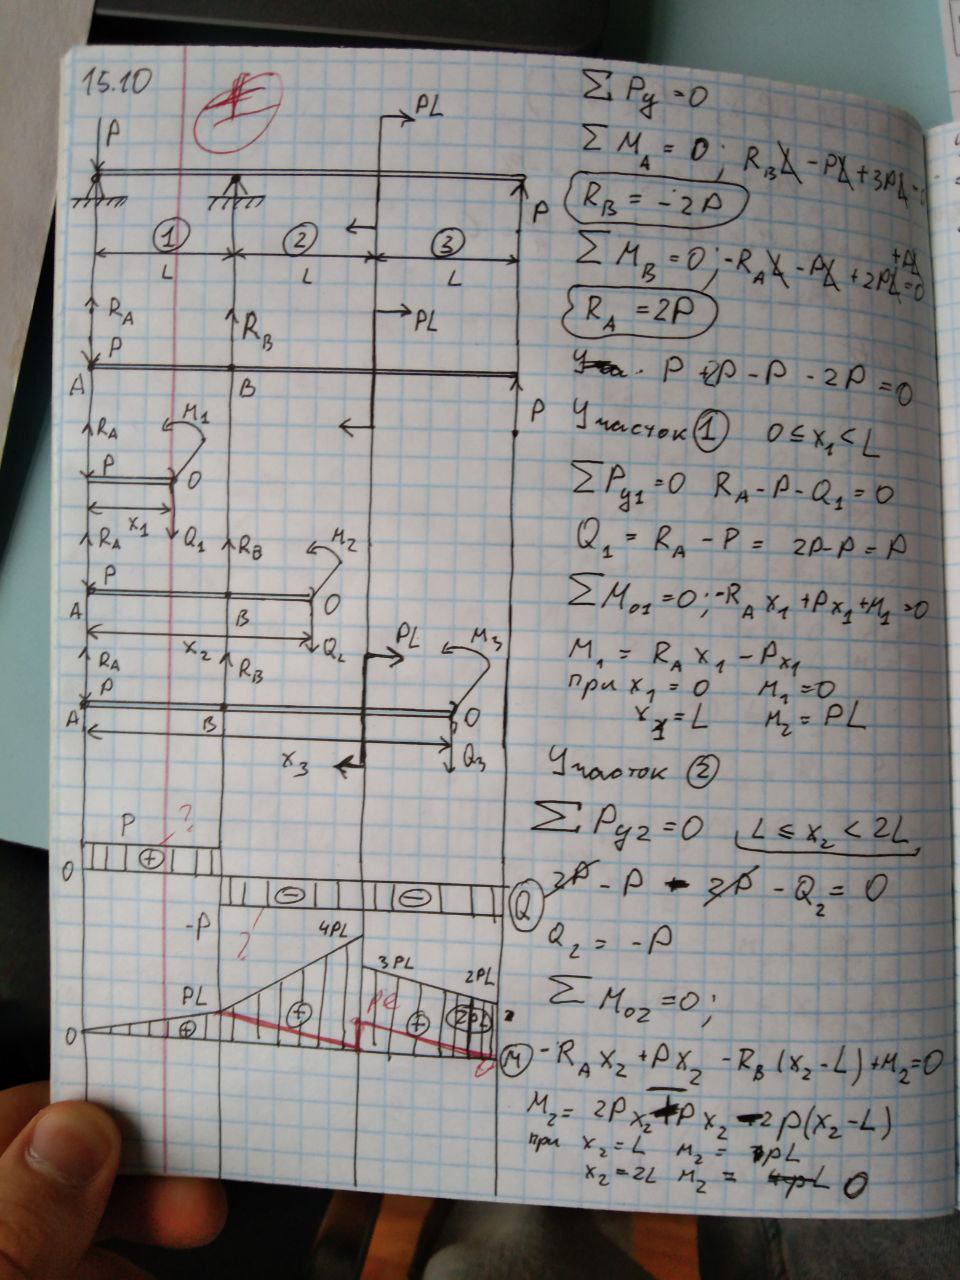 15.10
PL
P
P
1 2 3
L L L
R_A R_B PL
P
A B P
R_A M_1
P O
x_1 Q_1
R_A R_B M_2
P
A B O
x_2 Q_2
R_A R_B PL M_3
P
A B O
x_3 Q_3
P ?
0 + - - Q
-P ? 4PL
3PL 2PL
PL Pl
0 + + + 2PL M
0
ΣPy = 0
ΣM_A = 0; R_B L - PL + 3PL = 0
R_B = -2P
ΣM_B = 0; -R_A L - PL + 2PL + PL = 0
R_A = 2P
P + 2P - P - 2P = 0
Участок 1 0 ≤ x_1 < L
ΣPy1 = 0 R_A - P - Q_1 = 0
Q_1 = R_A - P = 2P - P = P
ΣM_01 = 0; -R_A x_1 + Px_1 + M_1 = 0
M_1 = R_A x_1 - Px_1
при x_1 = 0 M_1 = 0
x_1 = L M_2 = PL
Участок 2
ΣPy2 = 0 L ≤ x_2 < 2L
2P - P - 2P - Q_2 = 0
Q_2 = -P
ΣM_02 = 0;
-R_A x_2 + Px_2 - R_B (x_2 - L) + M_2 = 0
M_2 = 2Px_2 - Px_2 - 2P(x_2 - L)
при x_2 = L M_2 = PL
x_2 = 2L M_2 = 4PL 0